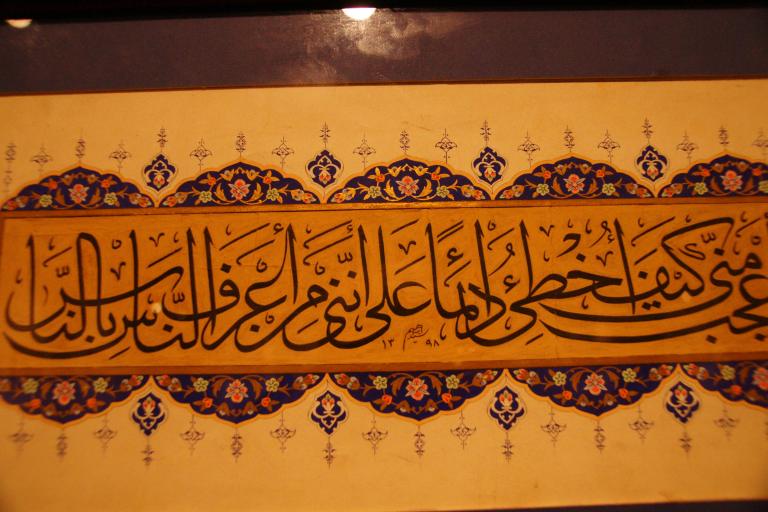 أعجب منّي كيف أُخطئ دائماً على أنّني مِن أعرف النّاسِ بالنّاسِ
١٣٩٨